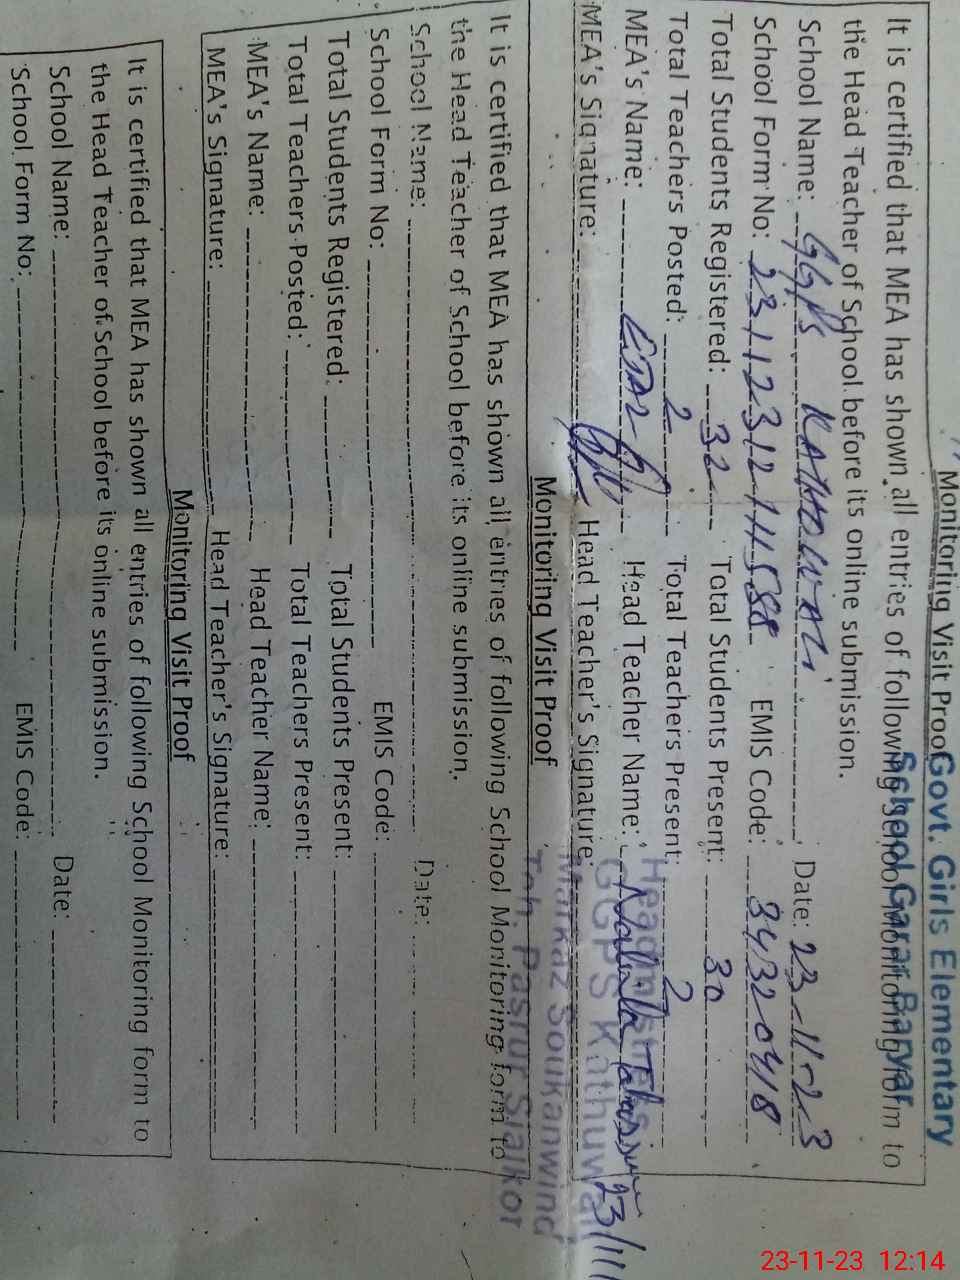 Govt. Girls Elementary
School Garar Baryar
Monitoring Visit Proof
It is certified that MEA has shown all entries of following School Monitoring form to
the Head Teacher of School before its online submission.
School Name: GGPS KATHOWALI Date: 23-11-23
School Form No: 231123121411588 EMIS Code: 34320418
Total Students Registered: 32 Total Students Present: 30
Total Teachers Posted: 2 Total Teachers Present: 2
MEA's Name: Head Teacher Name: Tabassum
MEA's Signature: Head Teacher's Signature: 23/11/
Headmistress
GGPS Kathuwali
Markaz Soukanwind
Teh. Pasrur Sialkot
Monitoring Visit Proof
It is certified that MEA has shown all entries of following School Monitoring form to
the Head Teacher of School before its online submission.
School Name: Date:
School Form No: EMIS Code:
Total Students Registered: Total Students Present:
Total Teachers Posted: Total Teachers Present:
MEA's Name: Head Teacher Name:
MEA's Signature: Head Teacher's Signature:
Monitoring Visit Proof
It is certified that MEA has shown all entries of following School Monitoring form to
the Head Teacher of School before its online submission.
School Name: Date:
School Form No: EMIS Code:
23-11-23 12:14